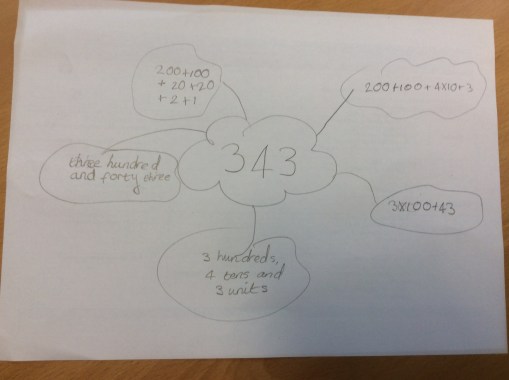 200+100
+ 20+20
+ 2+1
200+100+4x10+3
three hundred
and forty three
343
3x100+43
3 hundreds,
4 tens and
3 units